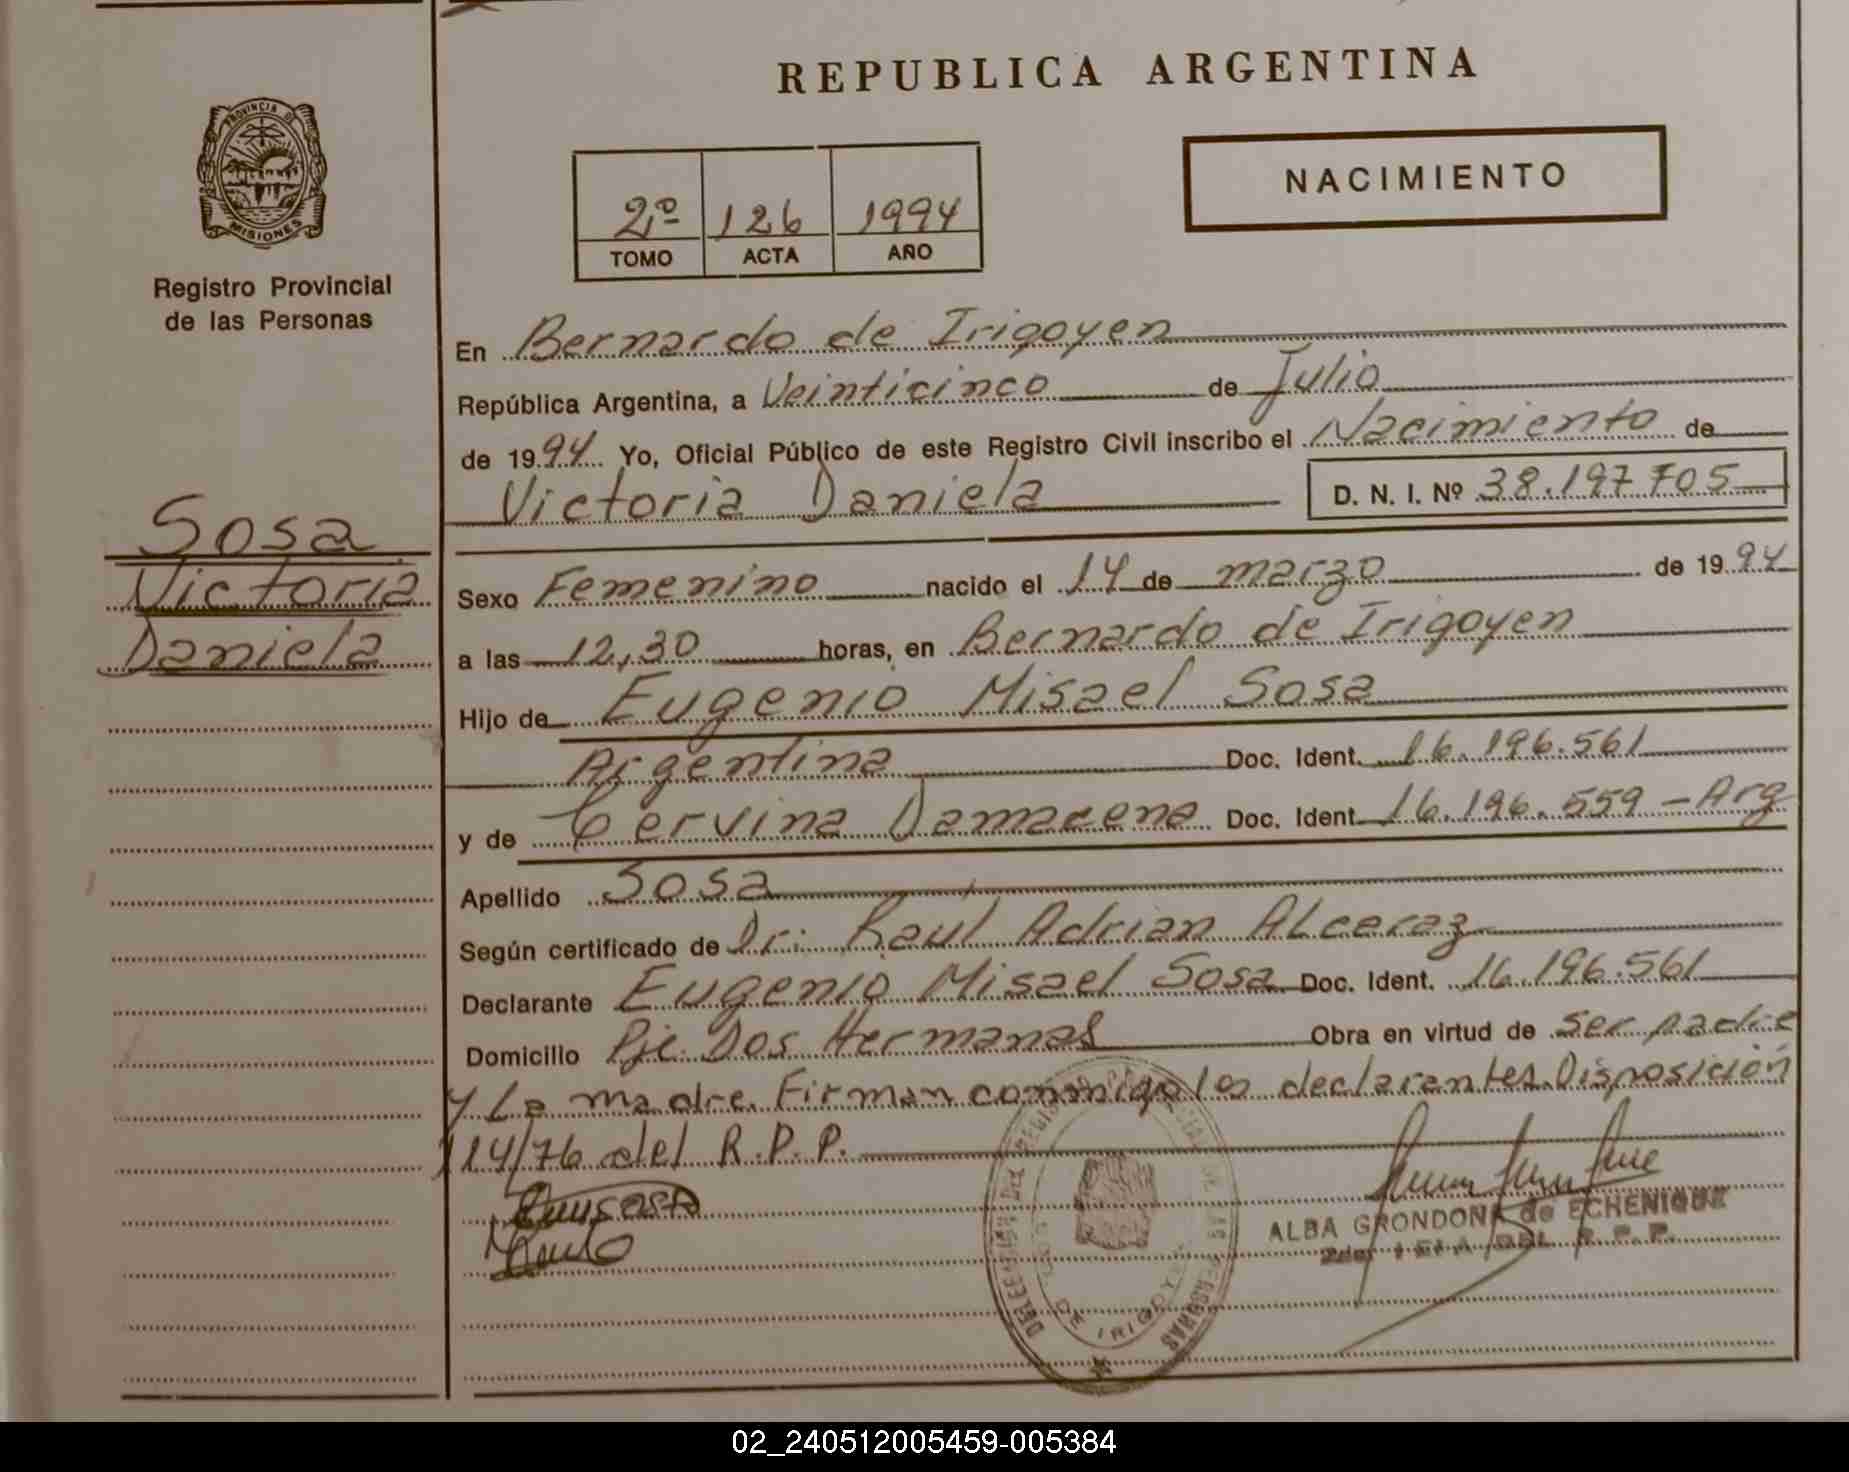 REPUBLICA ARGENTINA
PROVINCIA DE MISIONES
Registro Provincial
de las Personas
2º 126 1994
TOMO ACTA AÑO
NACIMIENTO
Sosa
Victoria
Daniela
En Bernardo de Irigoyen
República Argentina, a Veinticinco de Julio
de 1994 Yo, Oficial Público de este Registro Civil inscribo el Nacimiento de
Victoria Daniela D. N. I. Nº 38.197.705
Sexo Femenino nacido el 14 de marzo de 1994
a las 12,30 horas, en Bernardo de Irigoyen
Hijo de Eugenio Misael Sosa
Argentina Doc. Ident. 16.196.561
y de Cervina Damacena Doc. Ident. 16.196.559 - Arg
Apellido Sosa
Según certificado de Dr. Raul Adrian ALceraz
Declarante Eugenio Misael Sosa Doc. Ident. 16.196.561
Domicilio Pje. Dos Hermanas Obra en virtud de ser padre
y La madre. Firman conmigo los declarantes. Disposición
114/76 del R.P.P.
ALBA GRONDONA de ECHENIQUE
DEL R. P. P.
02_240512005459-005384